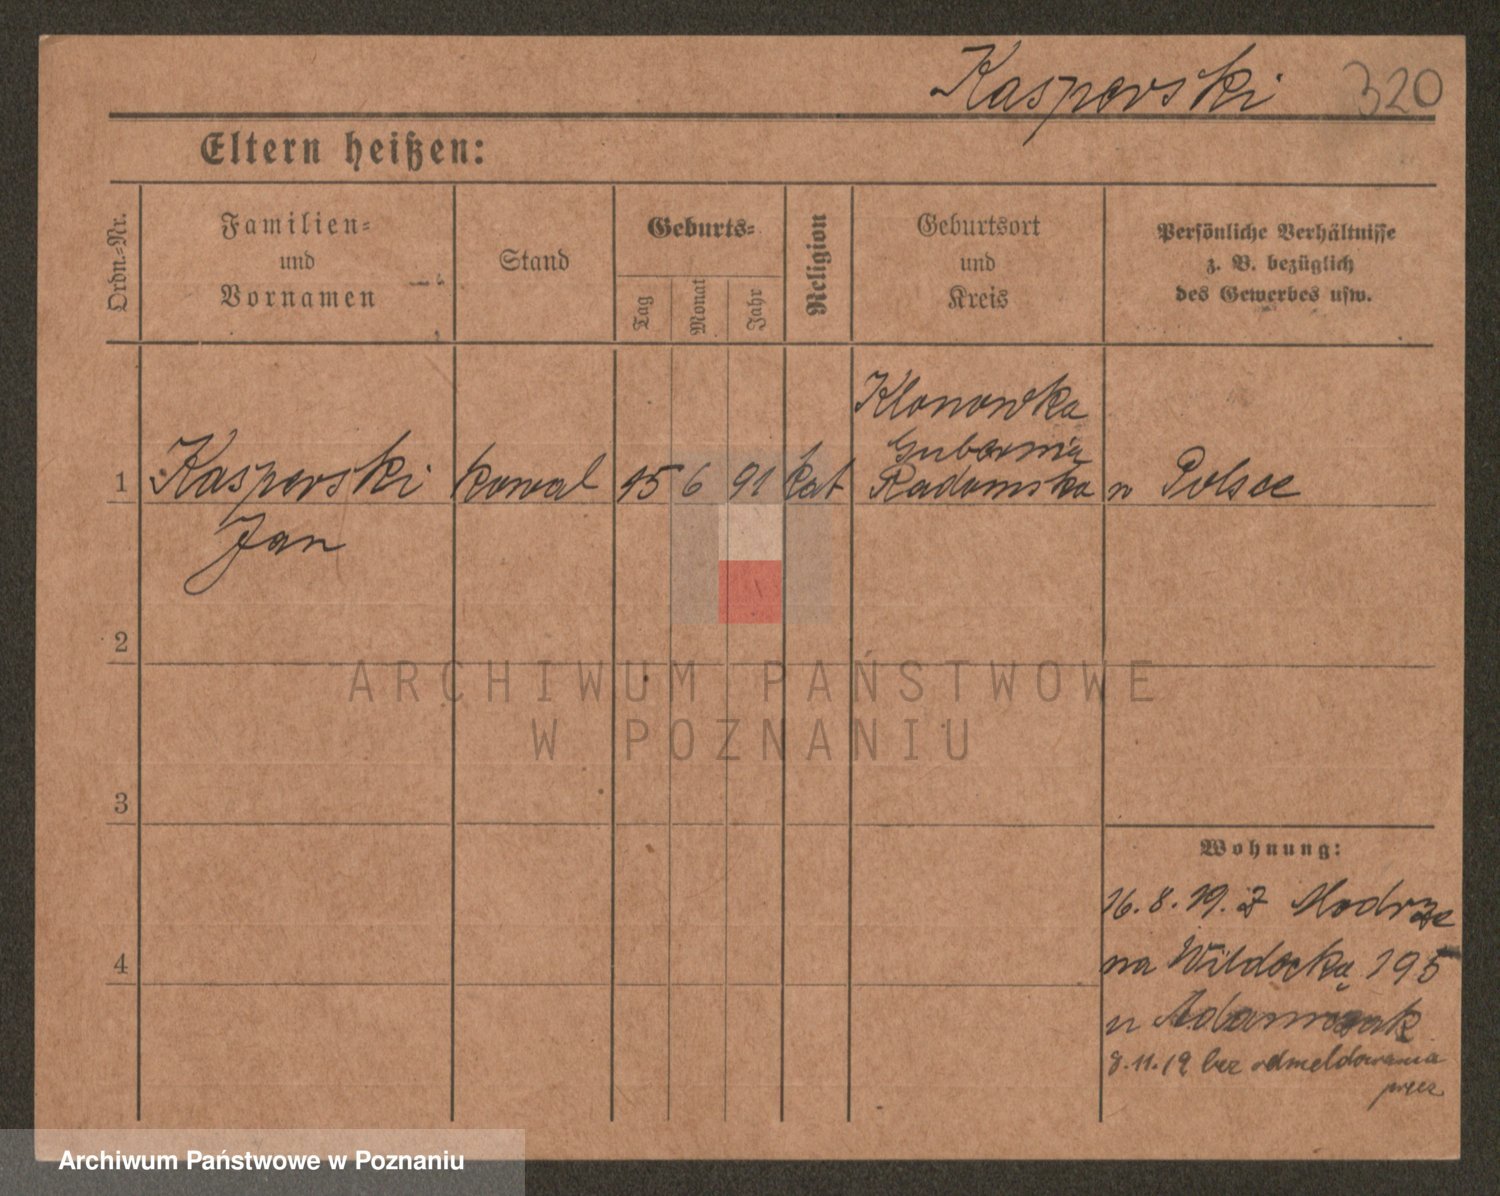 Kasperski 320
Eltern heißen:
Ordn.-Nr.
Familien-
und
Vornamen
Stand
Geburts-
Tag
Monat
Jahr
Religion
Geburtsort
und
Kreis
Persönliche Verhältnisse
z. B. bezüglich
des Gewerbes usw.
Klonowka
Gubernia
1 Kasperski kowal 15 6 91 kat Radomska w Polsce
Jan
2
ARCHIWUM PAŃSTWOWE
W POZNANIU
3
Wohnung:
16.8.19. z Modrze
4 na Wildecką 195
u Adamczak
8.11.19 bez odmeldowania
precz
Archiwum Państwowe w Poznaniu